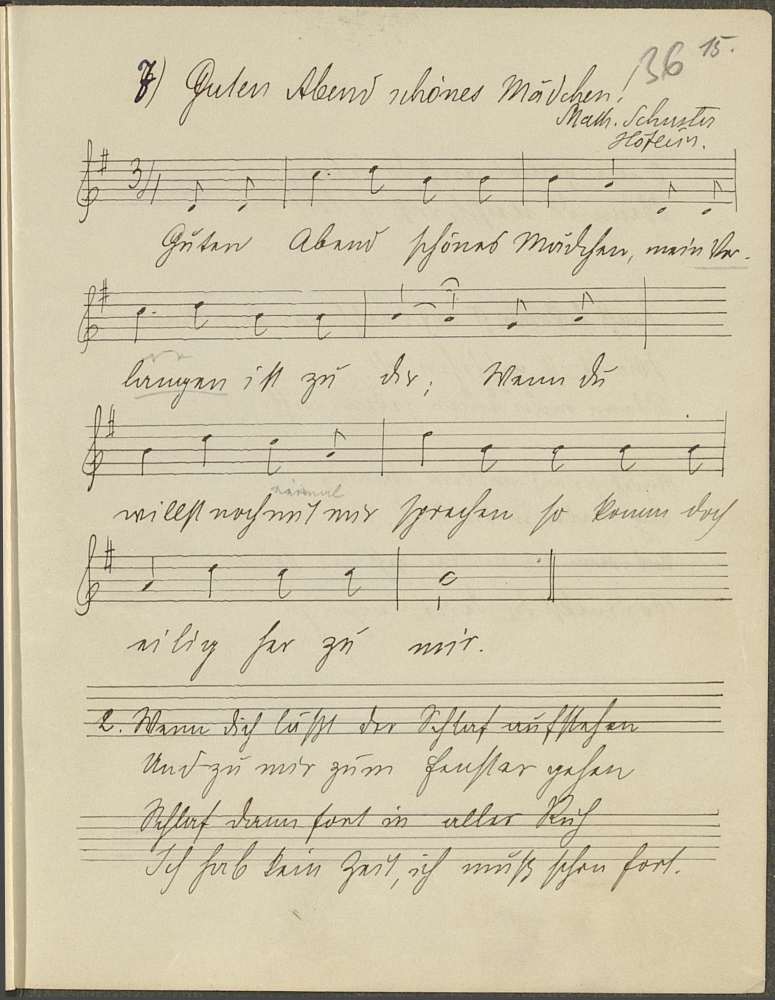 36 15.
7) Guten Abend schönes Mädchen!
Math. Schuster
3/4
Guten Abend schönes Mädchen, mein Ver-
langen ist zu dir; Wenn du
willst noch mit mir sprechen so komm doch
eilig her zu mir.
2. Wenn dich läßt der Schlaf aufstehen
Und zu mir zum Fenster gehen
Schlaf dann fort in aller Ruh
Ich hab kein Zeit, ich muß schon fort.